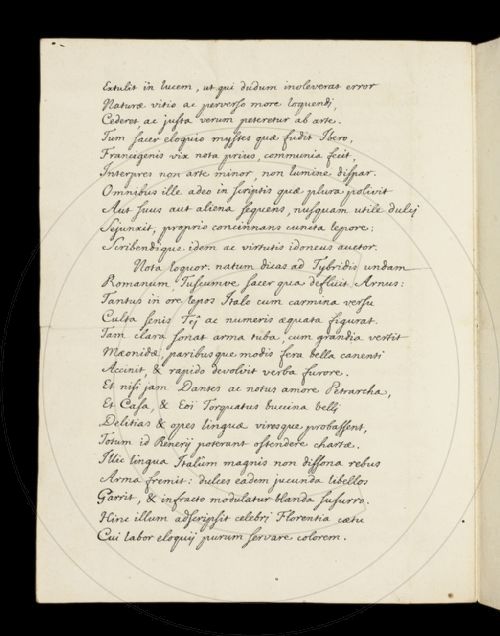 Extulit in lucem, ut qui dudum inoleverat error
Naturæ vitio ac perverso more loquendi,
Cederet, ac justa verum peteretur ab arte.
Tum sacer eloquio mystes quæ fudit Ibero,
Francigenis vix nota prius, communia fecit,
Interpres non arte minor, non lumine dispar.
Omnibus ille adeo in scriptis quæ plura polivit
Aut suus aut aliena sequens, nusquam utile dulci
Sejunxit, proprio concinnans cuncta lepore:
Scribendique idem ac virtutis idoneus auctor.
Nota loquor. natum dicas ad Tybridis undam
Romanum Tuscumve sacer qua defluit Arnus:
Tantus in ore lepos Italo cum carmina versu
Culta senis Tej ac numeris æquata figurat.
Tam clara sonat arma tuba, cum grandia vertit
Mæonidæ, paribusque modis fera bella canenti
Accinit, & rapido devolvit verba furore.
Et nisi jam Dantes ac notus amore Petrarcha,
Et Casa, & Eoi Torquatus buccina belli
Delitias & opes linguæ viresque probassent,
Totum id Renerij poterant ostendere chartæ.
Illic lingua Italûm magnis non dissona rebus
Arma fremit: dulces eadem jucunda libellos
Garrit, & infracto modulatur blanda susurro.
Hinc illum adscripsit celebri Florentia cœtu
Cui labor eloquij purum servare colorem.